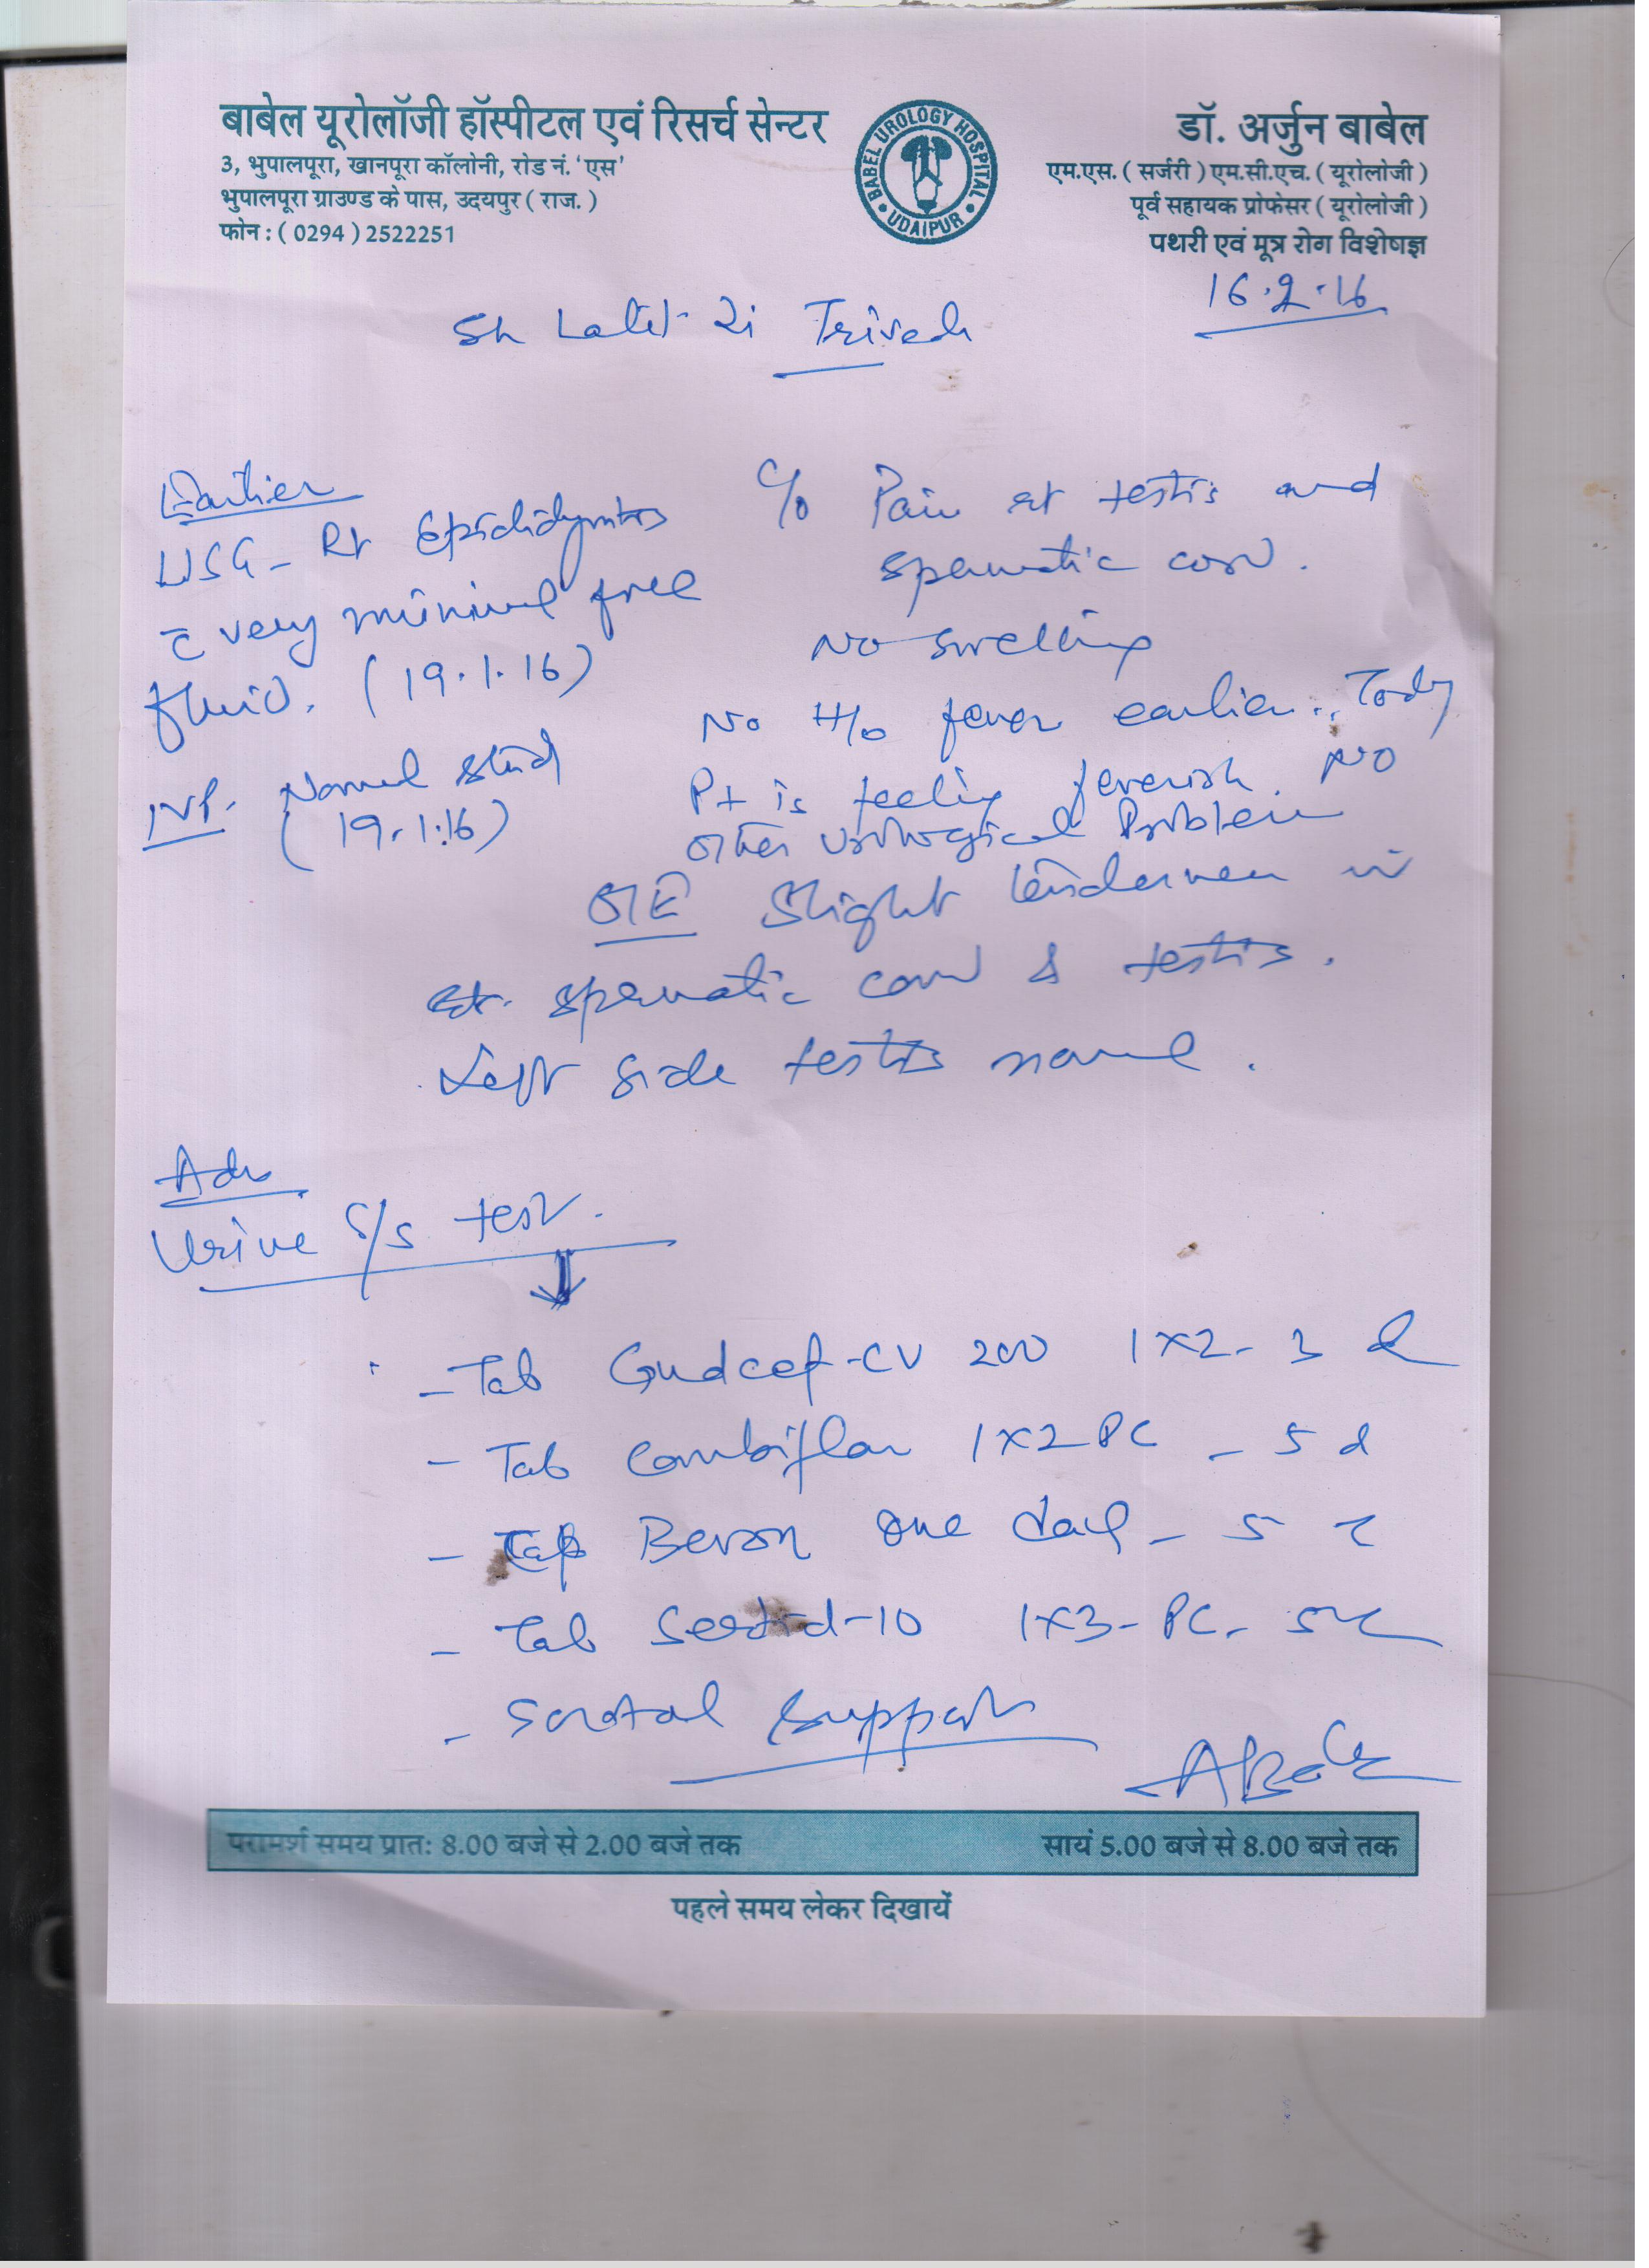 बाबेल यूरोलॉजी हॉस्पीटल एवं रिसर्च सेन्टर
3, भुपालपूरा, खानपूरा कॉलोनी, रोड नं. 'एस'
भुपालपूरा ग्राउण्ड के पास, उदयपुर ( राज. )
फोन : ( 0294 ) 2522251
BABEL UROLOGY HOSPITAL
UDAIPUR
डॉ. अर्जुन बाबेल
एम.एस. ( सर्जरी ) एम.सी.एच. ( यूरोलोजी )
पूर्व सहायक प्रोफेसर ( यूरोलोजी )
पथरी एवं मूत्र रोग विशेषज्ञ
16.2.16
Sh Trivedi
Earlier
USG - Rt Epididymitis
c̄ very minimal free
fluid. (19.1.16)
IVP. Normal
(19.1.16)
C/o Pain rt testis and
spermatic cord.
No swelling
No H/o fever earlier. Today
Pt is feeling feverish. No
other urological Problem
O/E Slight tenderness in
Rt. spermatic cord & testis.
Left side testis normal.
Adv
Urine C/S test.
- Tab Gudcef-CV 200 1x2 - 3 d
- Tab Combiflam 1x2 PC - 5 d
- Cap Bevon one daily - 5
- Tab -d-10 1x3 - PC - 5
- Scrotal support
परामर्श समय प्रातः 8.00 बजे से 2.00 बजे तक
सायं 5.00 बजे से 8.00 बजे तक
पहले समय लेकर दिखायें